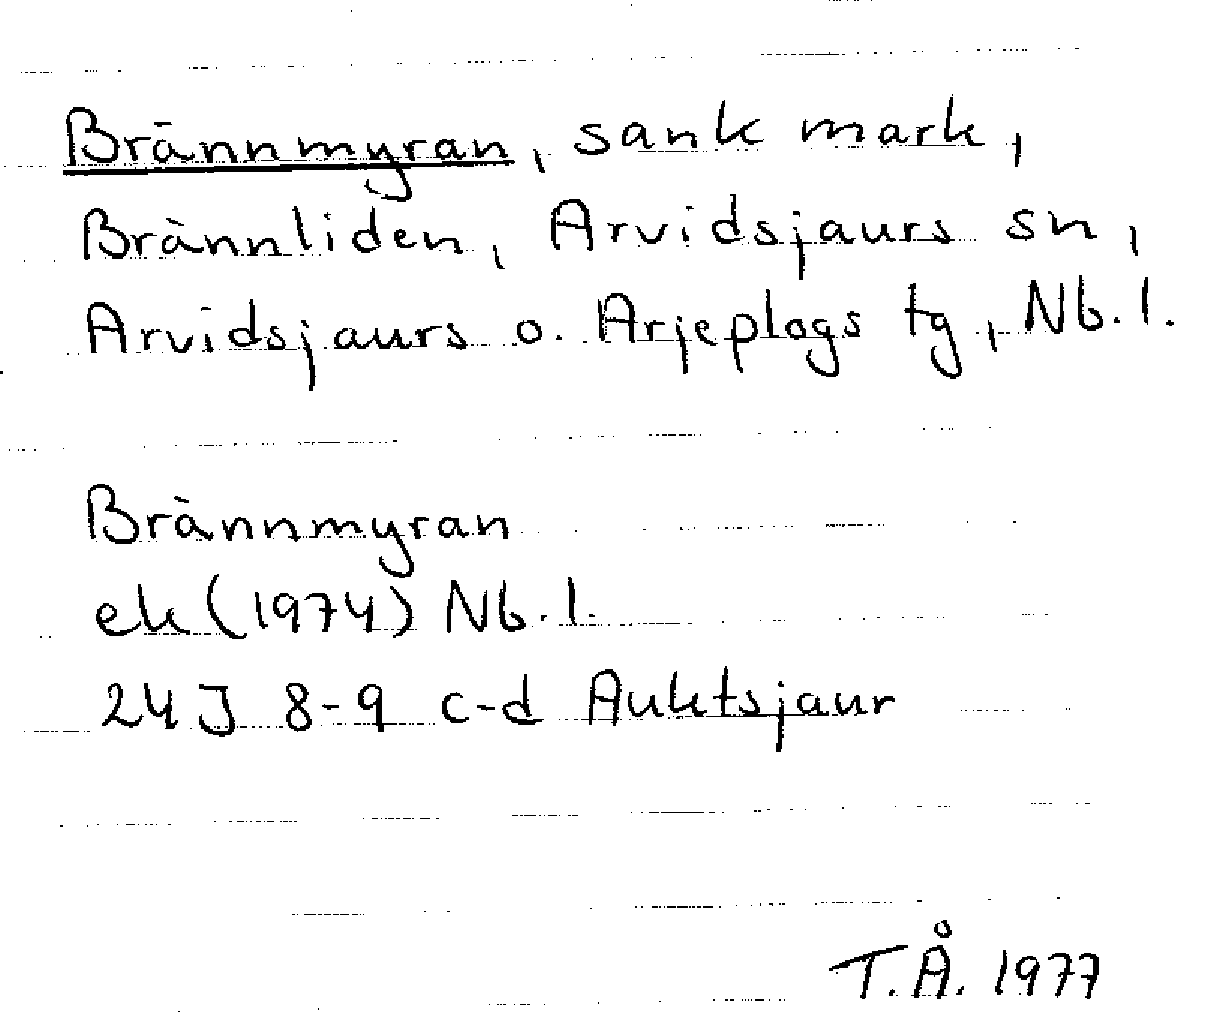 Brännmyran, sank mark,
Brännliden, Arvidsjaurs sn,
Arvidsjaurs o. Arjeplogs tg, Nb. l.
Brännmyran
ek (1974) Nb. l.
24 J 8-9 c-d Auktsjaur
T.Å. 1977